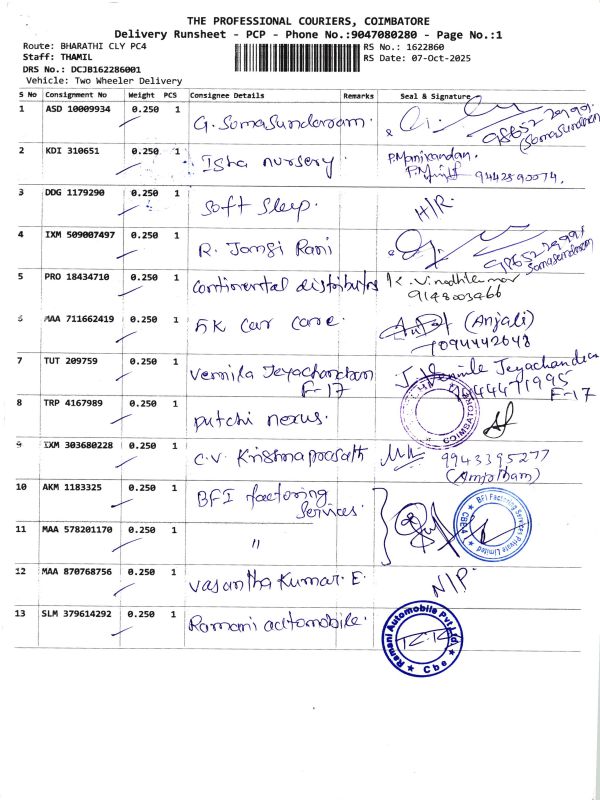 THE PROFESSIONAL COURIERS, COIMBATORE
Delivery Runsheet - PCP - Phone No.:9047080280 - Page No.:1
Route: BHARATHI CLY PC4 RS No.: 1622860
Staff: THAMIL RS Date: 07-Oct-2025
DRS No.: DCJB162286001
Vehicle: Two Wheeler Delivery
S No Consignment No Weight PCS Consignee Details Remarks Seal & Signature
1 ASD 10009934 0.250 1 G. Somasundaram. (Somasundaram)
2 KDI 310651 0.250 1 Isha nursery. P.Manikandan.
9442590074.
3 DDG 1179290 0.250 1 Soft Sleep. H/R.
4 IXM 509007497 0.250 1 R. Jansi Rani Somasundaram
5 PRO 18434710 0.250 1 Continental distributors K. Vinodhkumar
9148003466
6 MAA 711662419 0.250 1 5K Car Care. (Anjali)
9094442048
7 TUT 209759 0.250 1 Vernila Jeyachandran J. Vernila Jeyachandran
F-17 F-17
8 TRP 4167989 0.250 1 putchi nexus. COIMBATORE
9 IXM 303680228 0.250 1 C.V. Krishna prasath 9943395277
10 AKM 1183325 0.250 1 BFI factoring
Services. BFI Factoring Services Private Limited CBE4
11 MAA 578201170 0.250 1 "
12 MAA 870768756 0.250 1 Vasantha Kumar. E. N/P.
13 SLM 379614292 0.250 1 Ramani automobile. Ramani Automobile Pvt Ltd Cbe